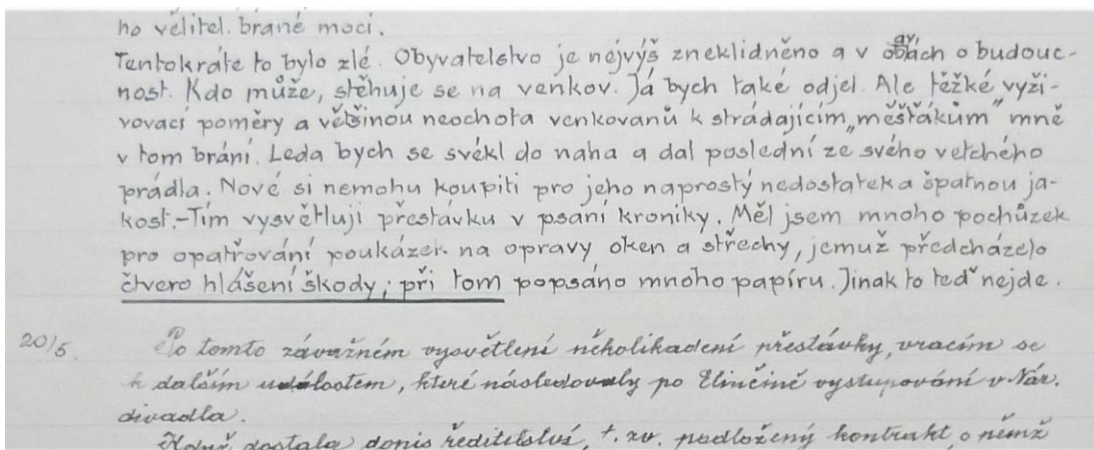 ho vělitel. brané moci.
Tentokráte to bylo zlé. Obyvatelstvo je nejvýš zneklidněno a v obavách o budouc-
nost. Kdo může, stěhuje se na venkov. Já bych také odjel. Ale těžké vyži-
vovací poměry a většinou neochota venkovanů k strádajícím „měšťákům" mně
v tom brání. Leda bych se svékl do naha a dal poslední ze svého vetchého
prádla. Nové si nemohu koupiti pro jeho naprostý nedostatek a špatnou ja-
kost.-Tím vysvětluji přestávku v psaní kroniky. Měl jsem mnoho pochůzek
pro opatřování poukázek na opravy oken a střechy, jemuž předcházelo
čtvero hlášení škody; při tom popsáno mnoho papíru. Jinak to teď nejde.
20/5. Po tomto závažném vysvětlení několikadení přestávky, vracím se
k dalším událostem, které následovaly po Elinčině vystupování v Nár.
divadla.
Když dostala dopis ředitelství, t. zv. podložený kontrakt, o němž